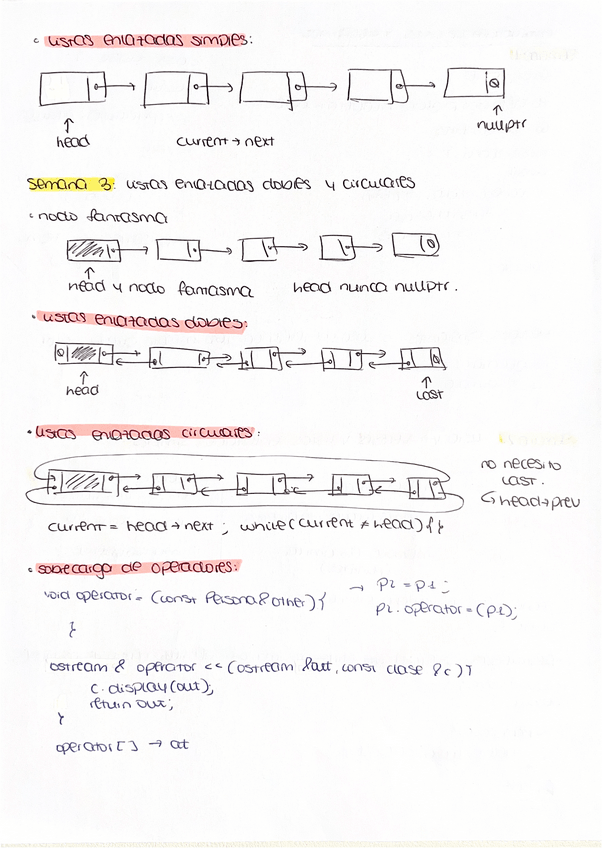 • Listas enlazadas simples:
head
current → next
nullptr
Semana 3: Listas enlazadas dobles y circulares
• nodo fantasma
head y nodo fantasma
head nunca nullptr.
• Listas enlazadas dobles:
head
Last
• Listas enlazadas circulares:
no necesito
Last.
↳ head→prev
current = head → next ; while(current ≠ head) { }
• sobrecarga de operadores:
void operator= (const Persona & other) {
→ P2 = P1 ;
P2. operator=(P1);
}
ostream & operator << (ostream &out, const clase &c) {
c.display(out);
return out;
}
operator[ ] → at